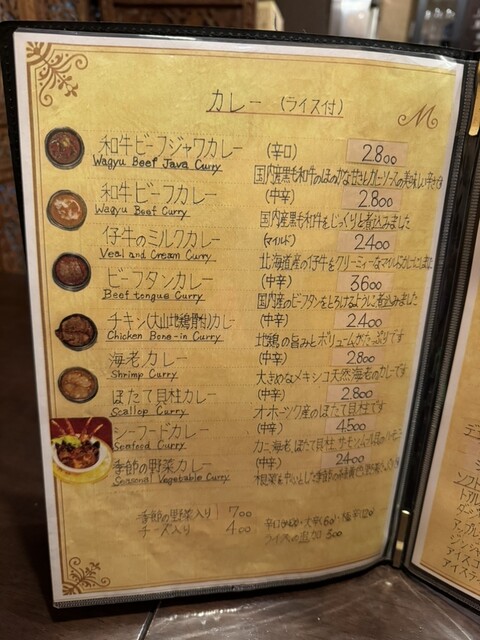 カレー (ライス付)
M
和牛ビーフジャワカレー (辛口) 2800
Wagyu Beef Java Curry
国内産黒毛和牛のほのかな甘さとカレーソースの美味しい辛さです
和牛ビーフカレー (中辛) 2800
Wagyu Beef Curry
国内産黒毛和牛をじっくりと煮込みました
仔牛のミルクカレー (マイルド) 2400
Veal and Cream Curry
北海道産の仔牛をクリーミーなマイルドカレーにしました
ビーフタンカレー (中辛) 3600
Beef tongue Curry
国内産のビーフタンをとろけるように煮込みました
チキン(大山地鶏骨付)カレー (中辛) 2400
Chicken Bone-in Curry
地鶏の旨みとボリュームがたっぷりです
海老カレー (中辛) 2800
Shrimp Curry
大きめなメキシコ天然海老のカレーです
ほたて貝柱カレー (中辛) 2800
Scallop Curry
オホーツク産のほたて貝柱です
シーフードカレー (中辛) 4500
Seafood Curry
カニ、海老、ほたて貝柱、サーモン
季節の野菜カレー (中辛) 2400
Seasonal Vegetable Curry
根菜を中心とした季節の
季節の野菜入り 700
チーズ入り 400
ライスの追加 300
ソフト
アップル
ジンジャ
アイスコ
アイステ